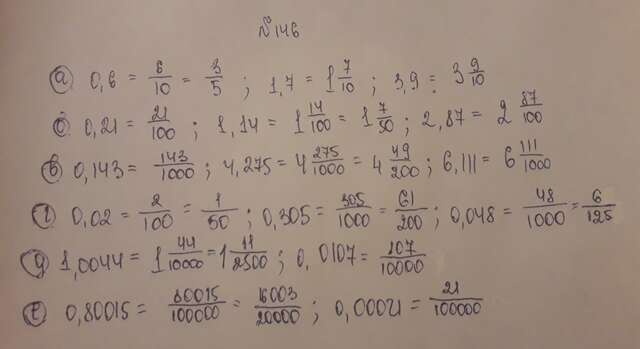 №146
а) 0,6 = 6/10 = 3/5 ; 1,7 = 1 7/10 ; 3,9 = 3 9/10
б) 0,21 = 21/100 ; 1,14 = 1 14/100 = 1 7/50 ; 2,87 = 2 87/100
в) 0,143 = 143/1000 ; 4,275 = 4 275/1000 = 4 49/200 ; 6,111 = 6 111/1000
г) 0,02 = 2/100 = 1/50 ; 0,305 = 305/1000 = 61/200 ; 0,048 = 48/1000 = 6/125
д) 1,0044 = 1 44/10000 = 1 11/2500 ; 0,0107 = 107/10000
е) 0,80015 = 80015/100000 = 16003/20000 ; 0,00021 = 21/100000